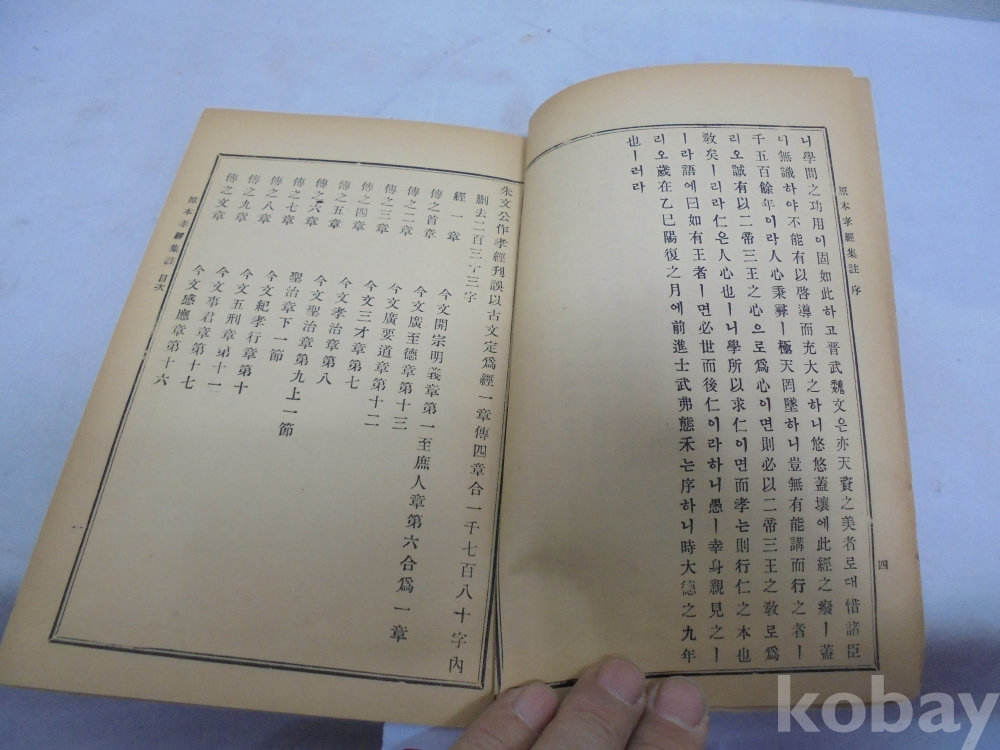 니學問之功用이固如此하고晋武魏文은亦天資之美者로대惜諸臣
이無識하야不能有以啓導而充大之하니悠悠蓋壤에此經之癈ㅣ蓋
千五百餘年이라人心秉彛ㅣ極天罔墜하니豈無有能講而行之者ㅣ
리오誠有以二帝三王之心으로爲心이면則必以二帝三王之敎로爲
敎矣ㅣ리라仁은人心也ㅣ니學所以求仁이면而孝는則行仁之本也
ㅣ라語에曰如有王者ㅣ면必世而後仁이라하니愚ㅣ幸身親見之ㅣ
리오歲在乙巳陽復之月에前進士武弗態禾는序하니時大德之九年
也ㅣ러라
原本孝經集註 序
四
朱文公作孝經刊誤以古文定爲經一章傳四章合一千七百八十字內
刪去二百三字三字
經一章 今文開宗明義章第一至庶人章第六合爲一章
傳之首章 今文廣至德章第十三
傳之二章 今文廣要道章第十二
傳之三章 今文三才章第七
傳之四章 今文孝治章第八
傳之五章 今文聖治章第九上一節
傳之六章 聖治章下一節
傳之七章 今文紀孝行章第十
傳之八章 今文五刑章第十一
傳之九章 今文事君章第十七
傳之文章 今文感應章第十六
原本孝經集註 目次
一
kobay